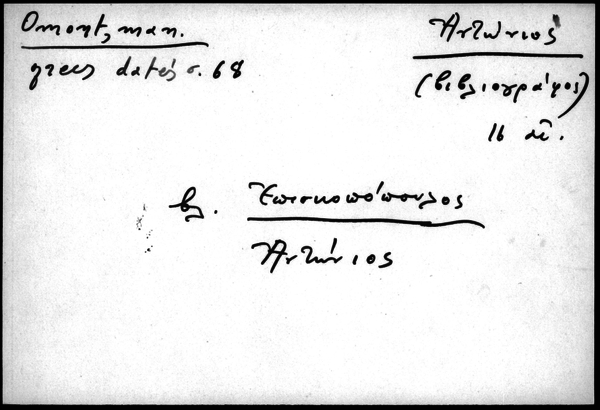 Omont, man.
grecs datés σ. 68
Ἀντώνιος
(βιβλιογράφος)
16 αἰ.
βλ. Ἐπισκοπόπουλος
Ἀντώνιος